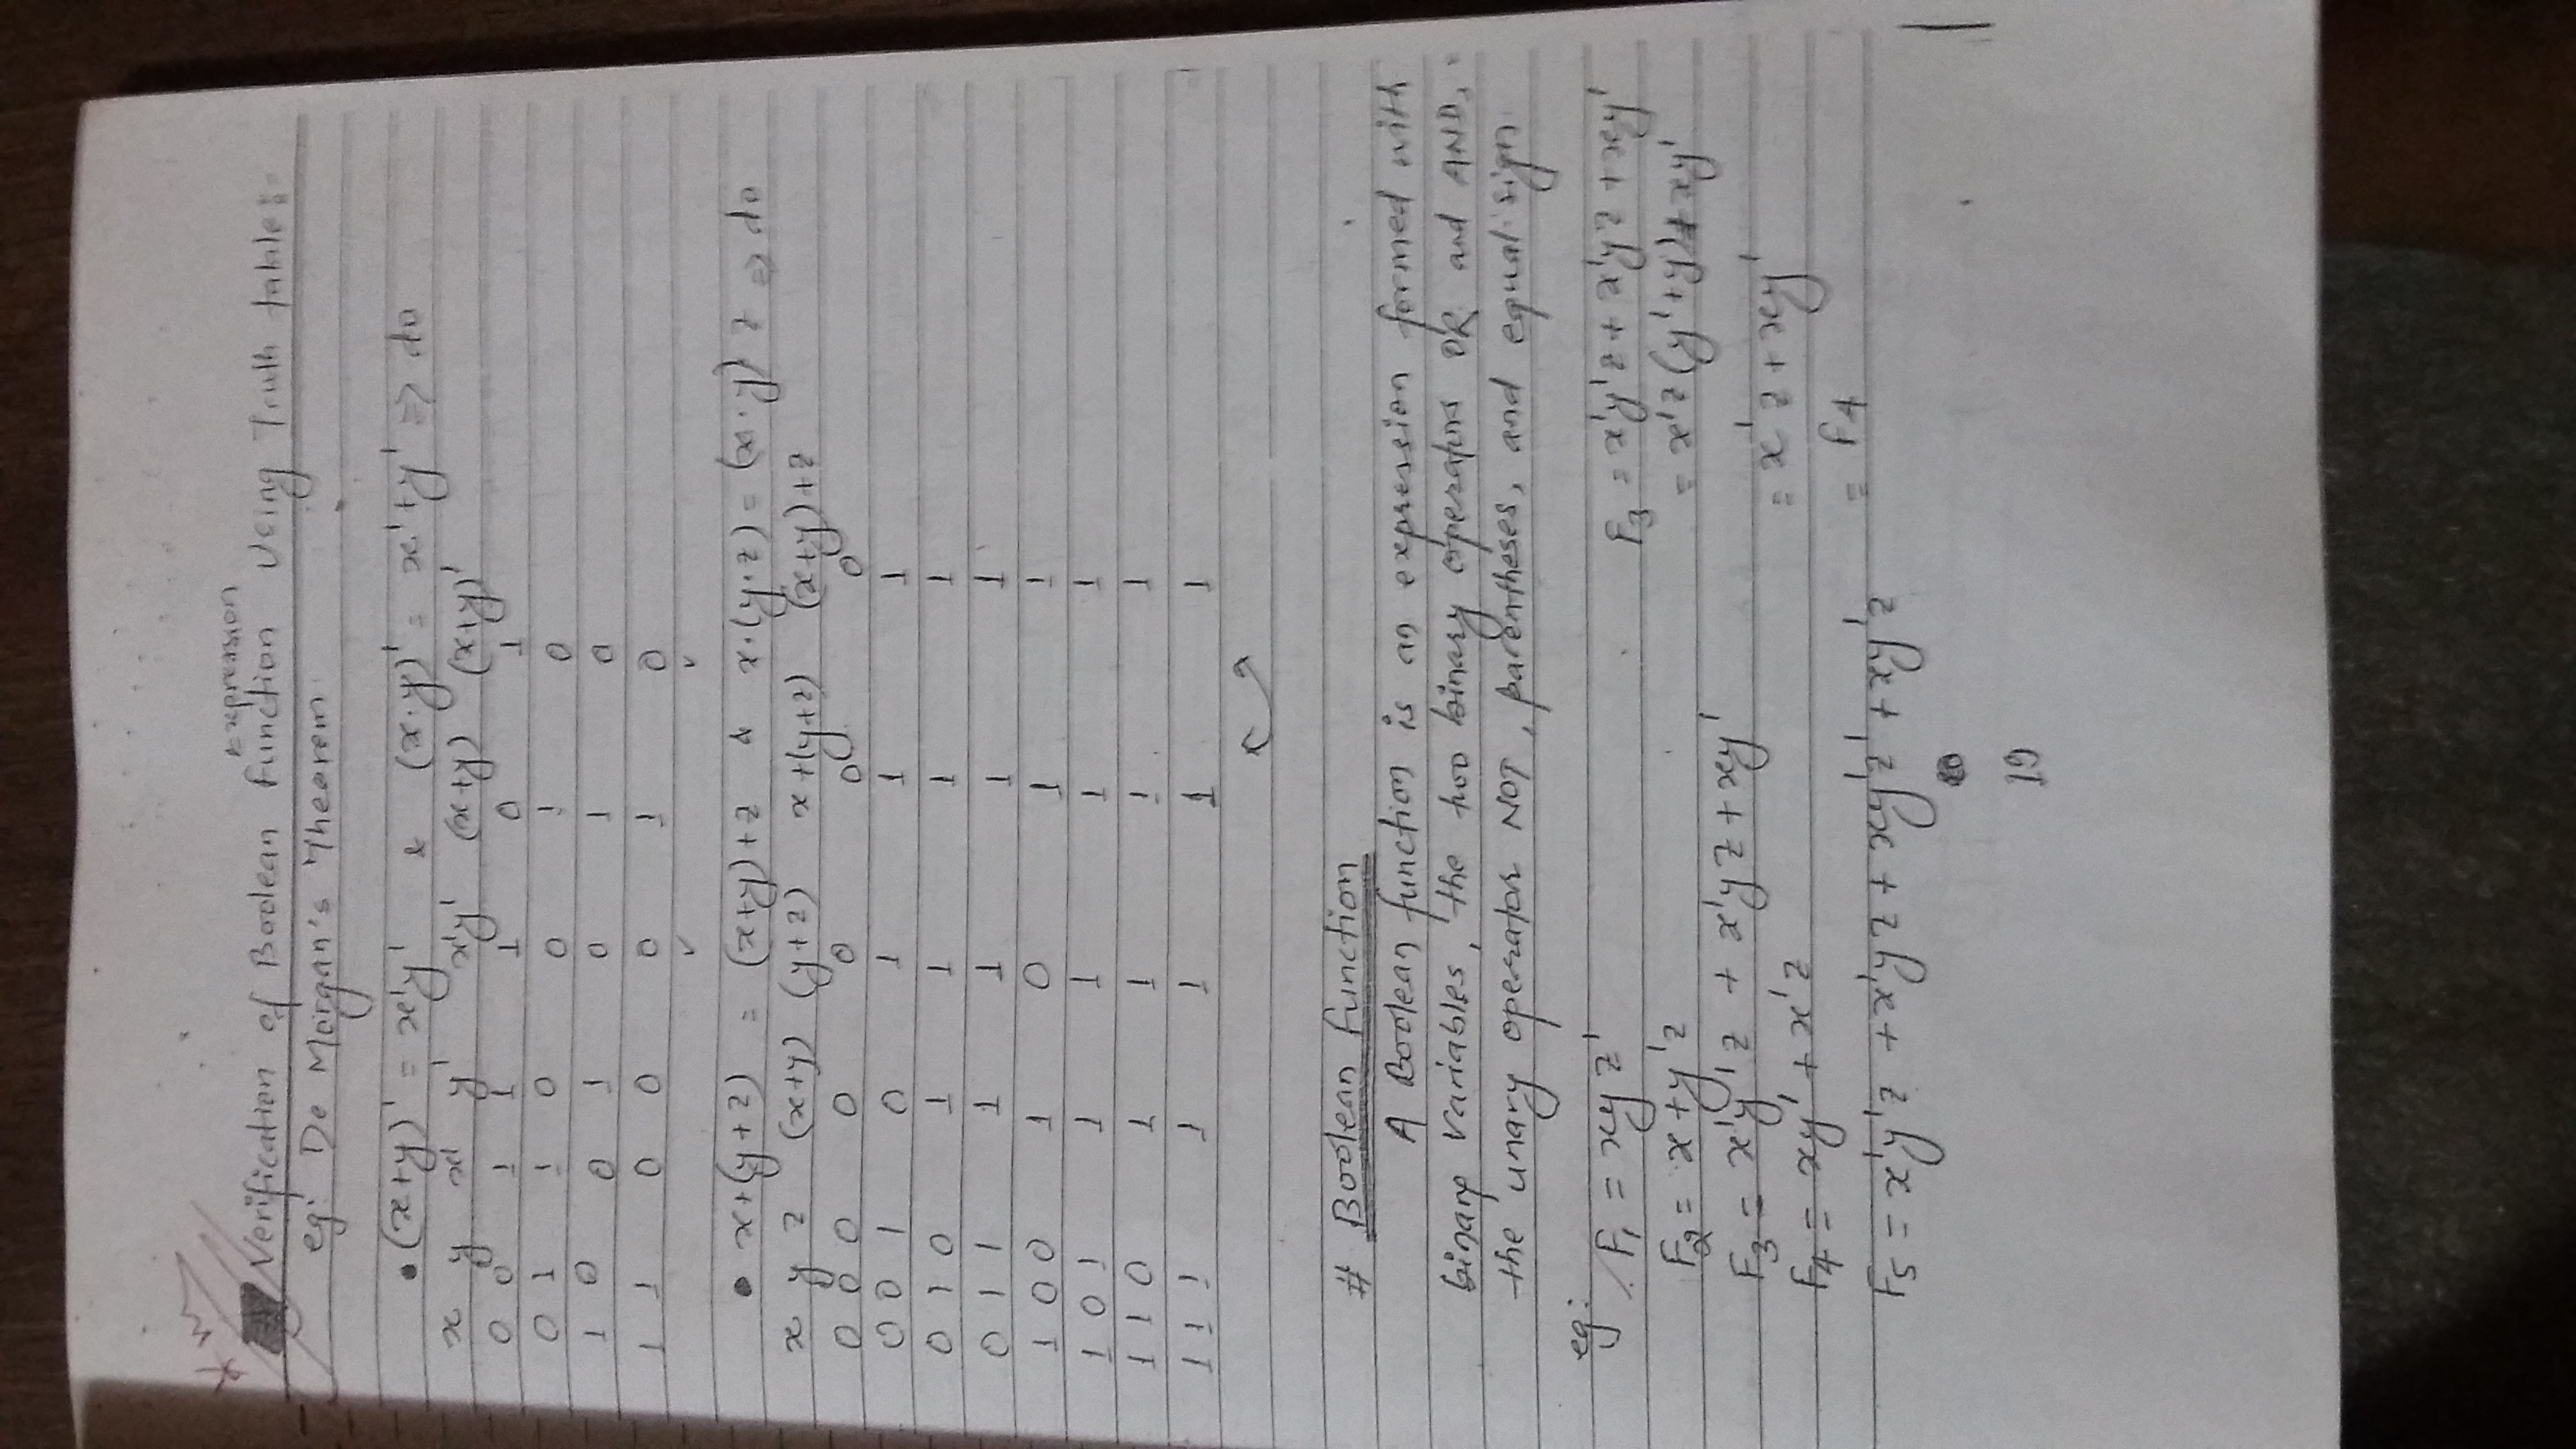 Expression
Verification of Boolean Function Using Truth table:
eg: De Morgan's Theorem
• (x+y)' = x'y' & (x·y)' = x'+y' => do
x y x' y' x'y' (x+y) (x+y)'
0 0 1 1 1 0 1
0 1 1 0 0 1 0
1 0 0 1 0 1 0
1 1 0 0 0 1 0
✓ ✓
• x+(y+z) = (x+y)+z & x·(y·z) = (x·y)·z => do
x y z (x+y) (y+z) x+(y+z) (x+y)+z
0 0 0 0 0 0 0
0 0 1 0 1 1 1
0 1 0 1 1 1 1
0 1 1 1 1 1 1
1 0 0 1 0 1 1
1 0 1 1 1 1 1
1 1 0 1 1 1 1
1 1 1 1 1 1 1
# Boolean function
A Boolean function is an expression formed with
binary variables, the two binary operators OR and AND,
the unary operator NOT, parentheses, and equal sign
eg:
F1 = xyz'
F2 = x+y'z
F3 = x'y'z + x'yz + xy'
F4 = xy' + x'z
F5 = x'y'z + x'yz + xy'z' + xy'z
F3 = x'y'z + x'yz + xy'
= x'z(y'+y)+xy'
= x'z + xy'
= F4
19